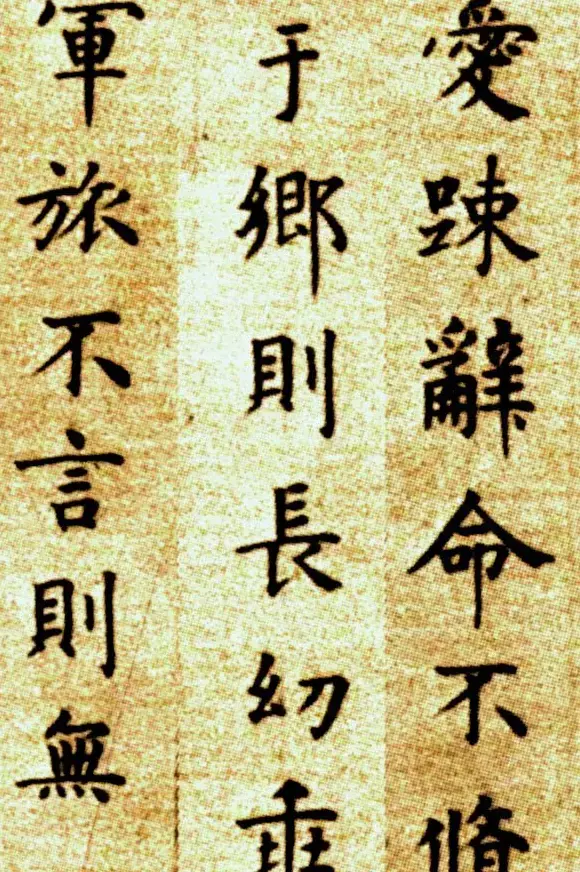 愛踈辭命不脩
于鄉則長幼
軍旅不言則無